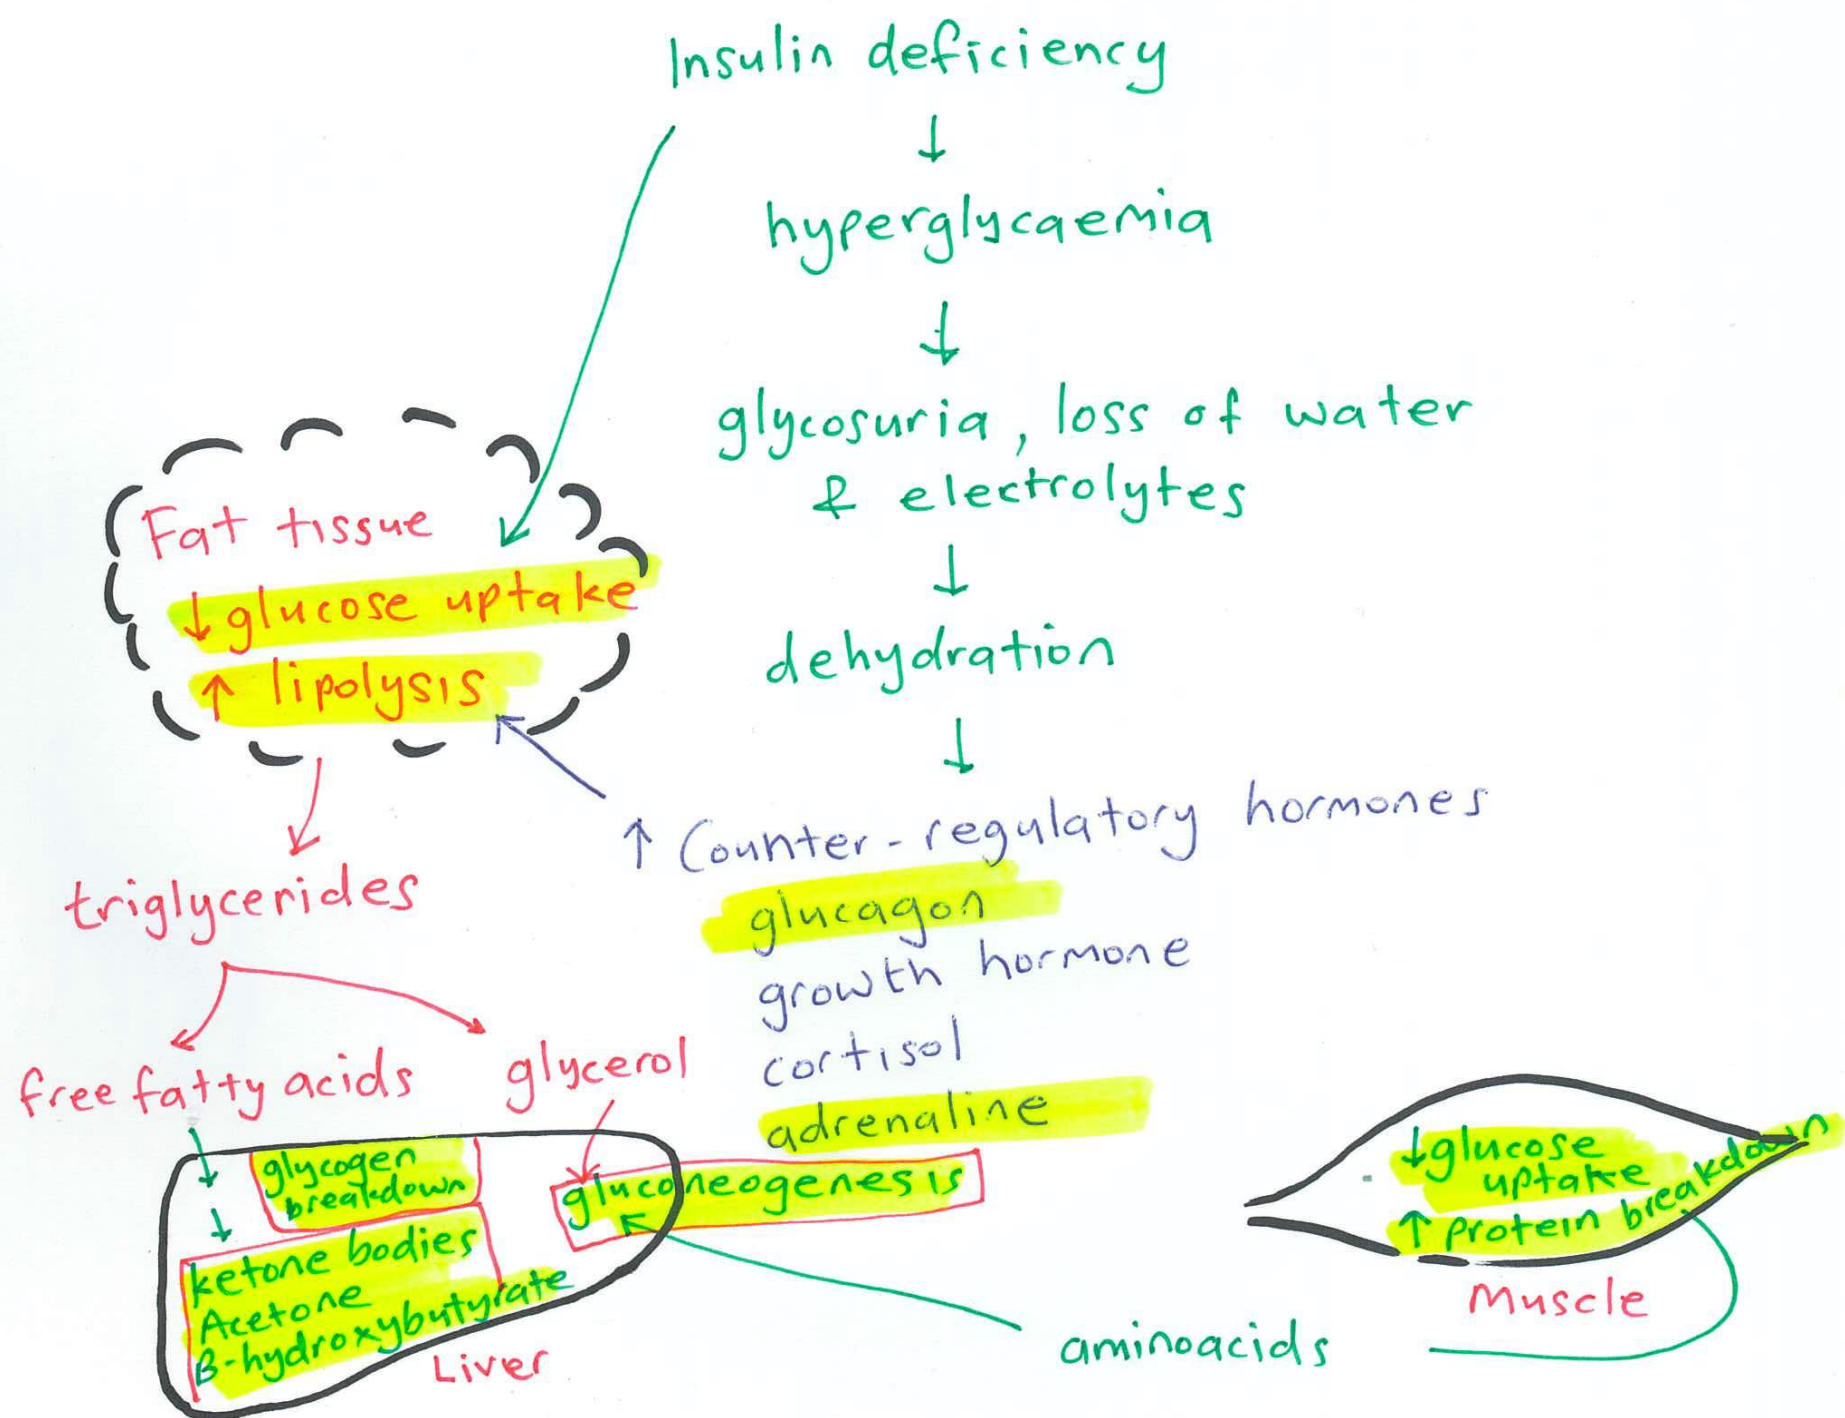 Insulin deficiency
↓
hyperglycaemia
↓
glycosuria, loss of water
& electrolytes
↓
dehydration
↓
↑ Counter-regulatory hormones
glucagon
growth hormone
cortisol
adrenaline
Fat tissue
↓ glucose uptake
↑ lipolysis
triglycerides
free fatty acids
glycerol
glycogen
breakdown
gluconeogenesis
ketone bodies
Acetone
β-hydroxybutyrate
Liver
↓ glucose
uptake
↑ protein breakdown
Muscle
aminoacids